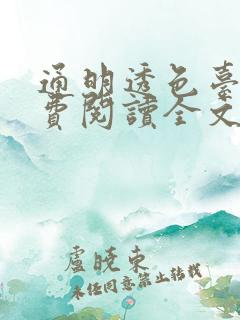 通明透色臺
費閱讀全文
盧曉東
未经同意禁止转载